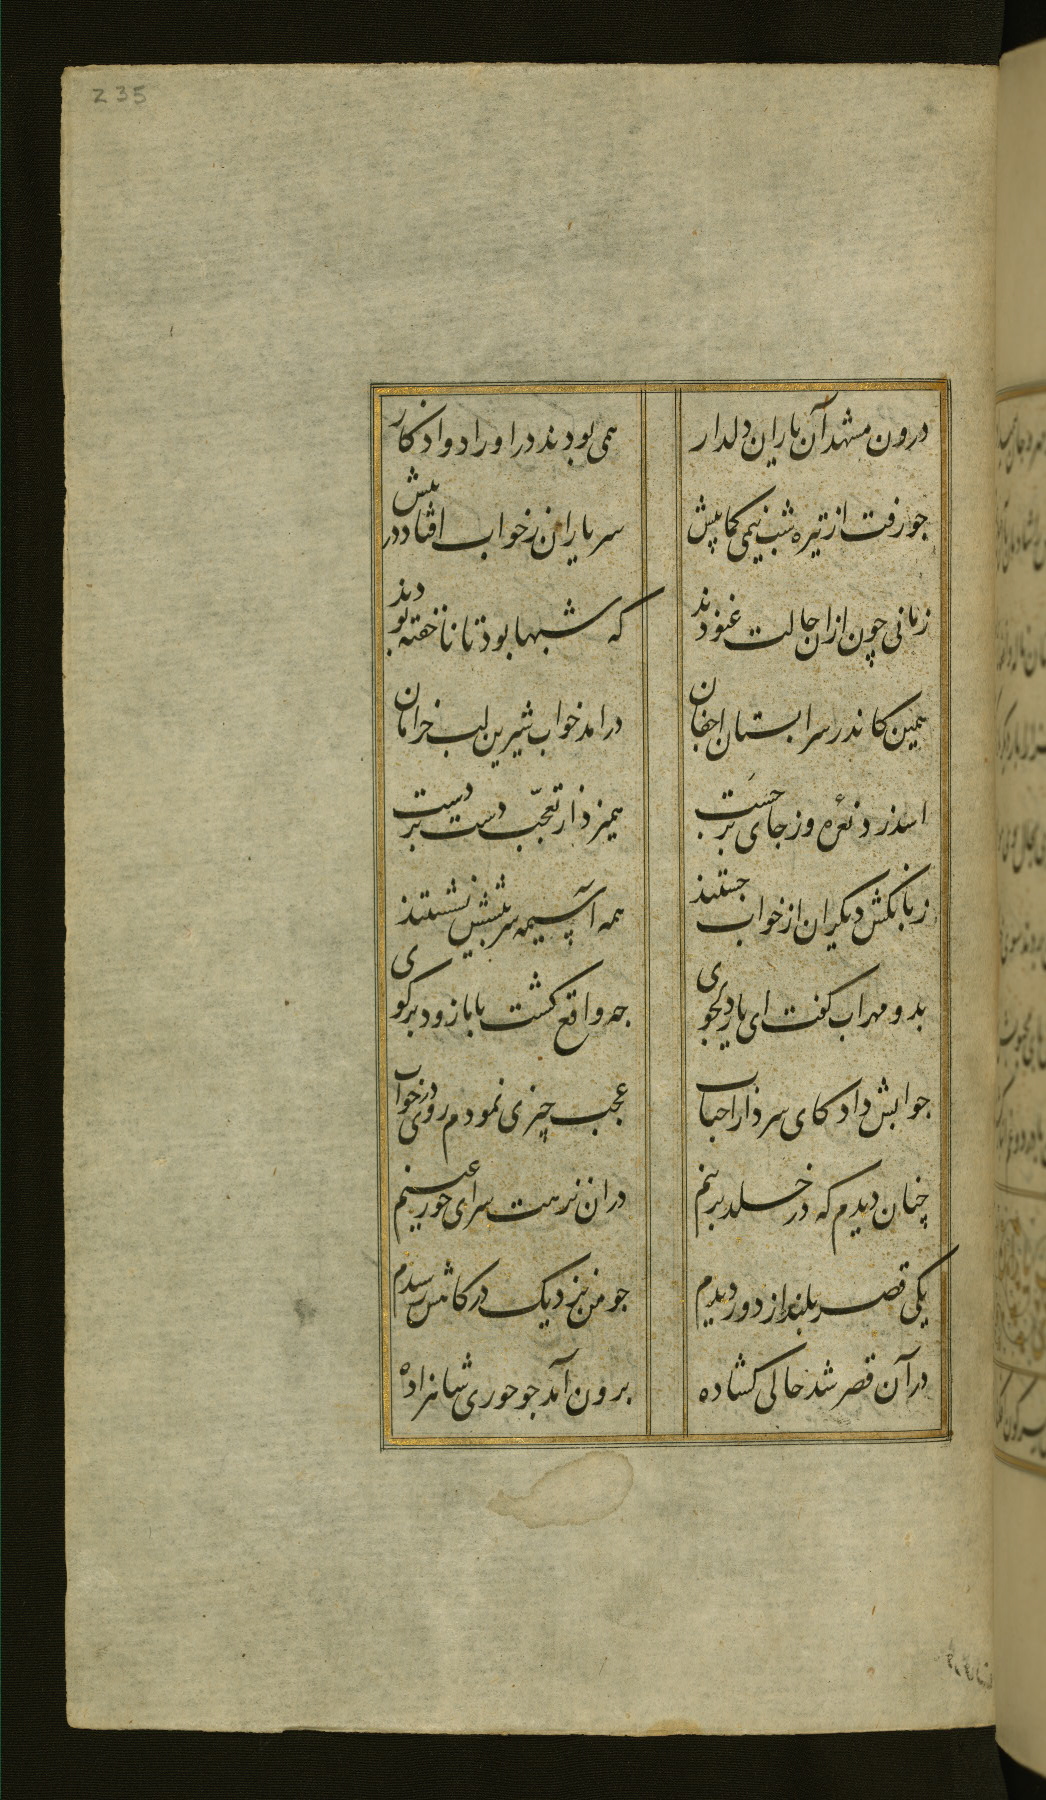 235
درون مشهد آن یاران دلدار همی بودند در اوراد و اذکار
جو رفت از تیره شب نیمی کمابیش سر یاران ز خواب افتاد در پیش
زمانی چون ازان حالت غنودند که شبها بود تا ناخفته بودند
همین کاندر سرابستان اجفان درامد خواب شیرین لب خرامان
اسد زد نعره وز جای برجست همیزد از تعجّب دست بر دست
ز بانکش دیکران از خواب جستند همه آسیمه سر پیشش نشستند
بدو مهراب کفت ای یار دلجوی جه واقع کشت بابا زود برکوی
جوابش داد کای سردار احباب عجب چیزی نمودم روی در خواب
چنان دیدم که در خلد برینم دران نزهت سرای حور عینم
یکی قصر بلند از دور دیدم جو من نزدیک درکاهش رسیدم
در آن قصر شد حالی کشاده برون آمد جو حوری شاهزاده